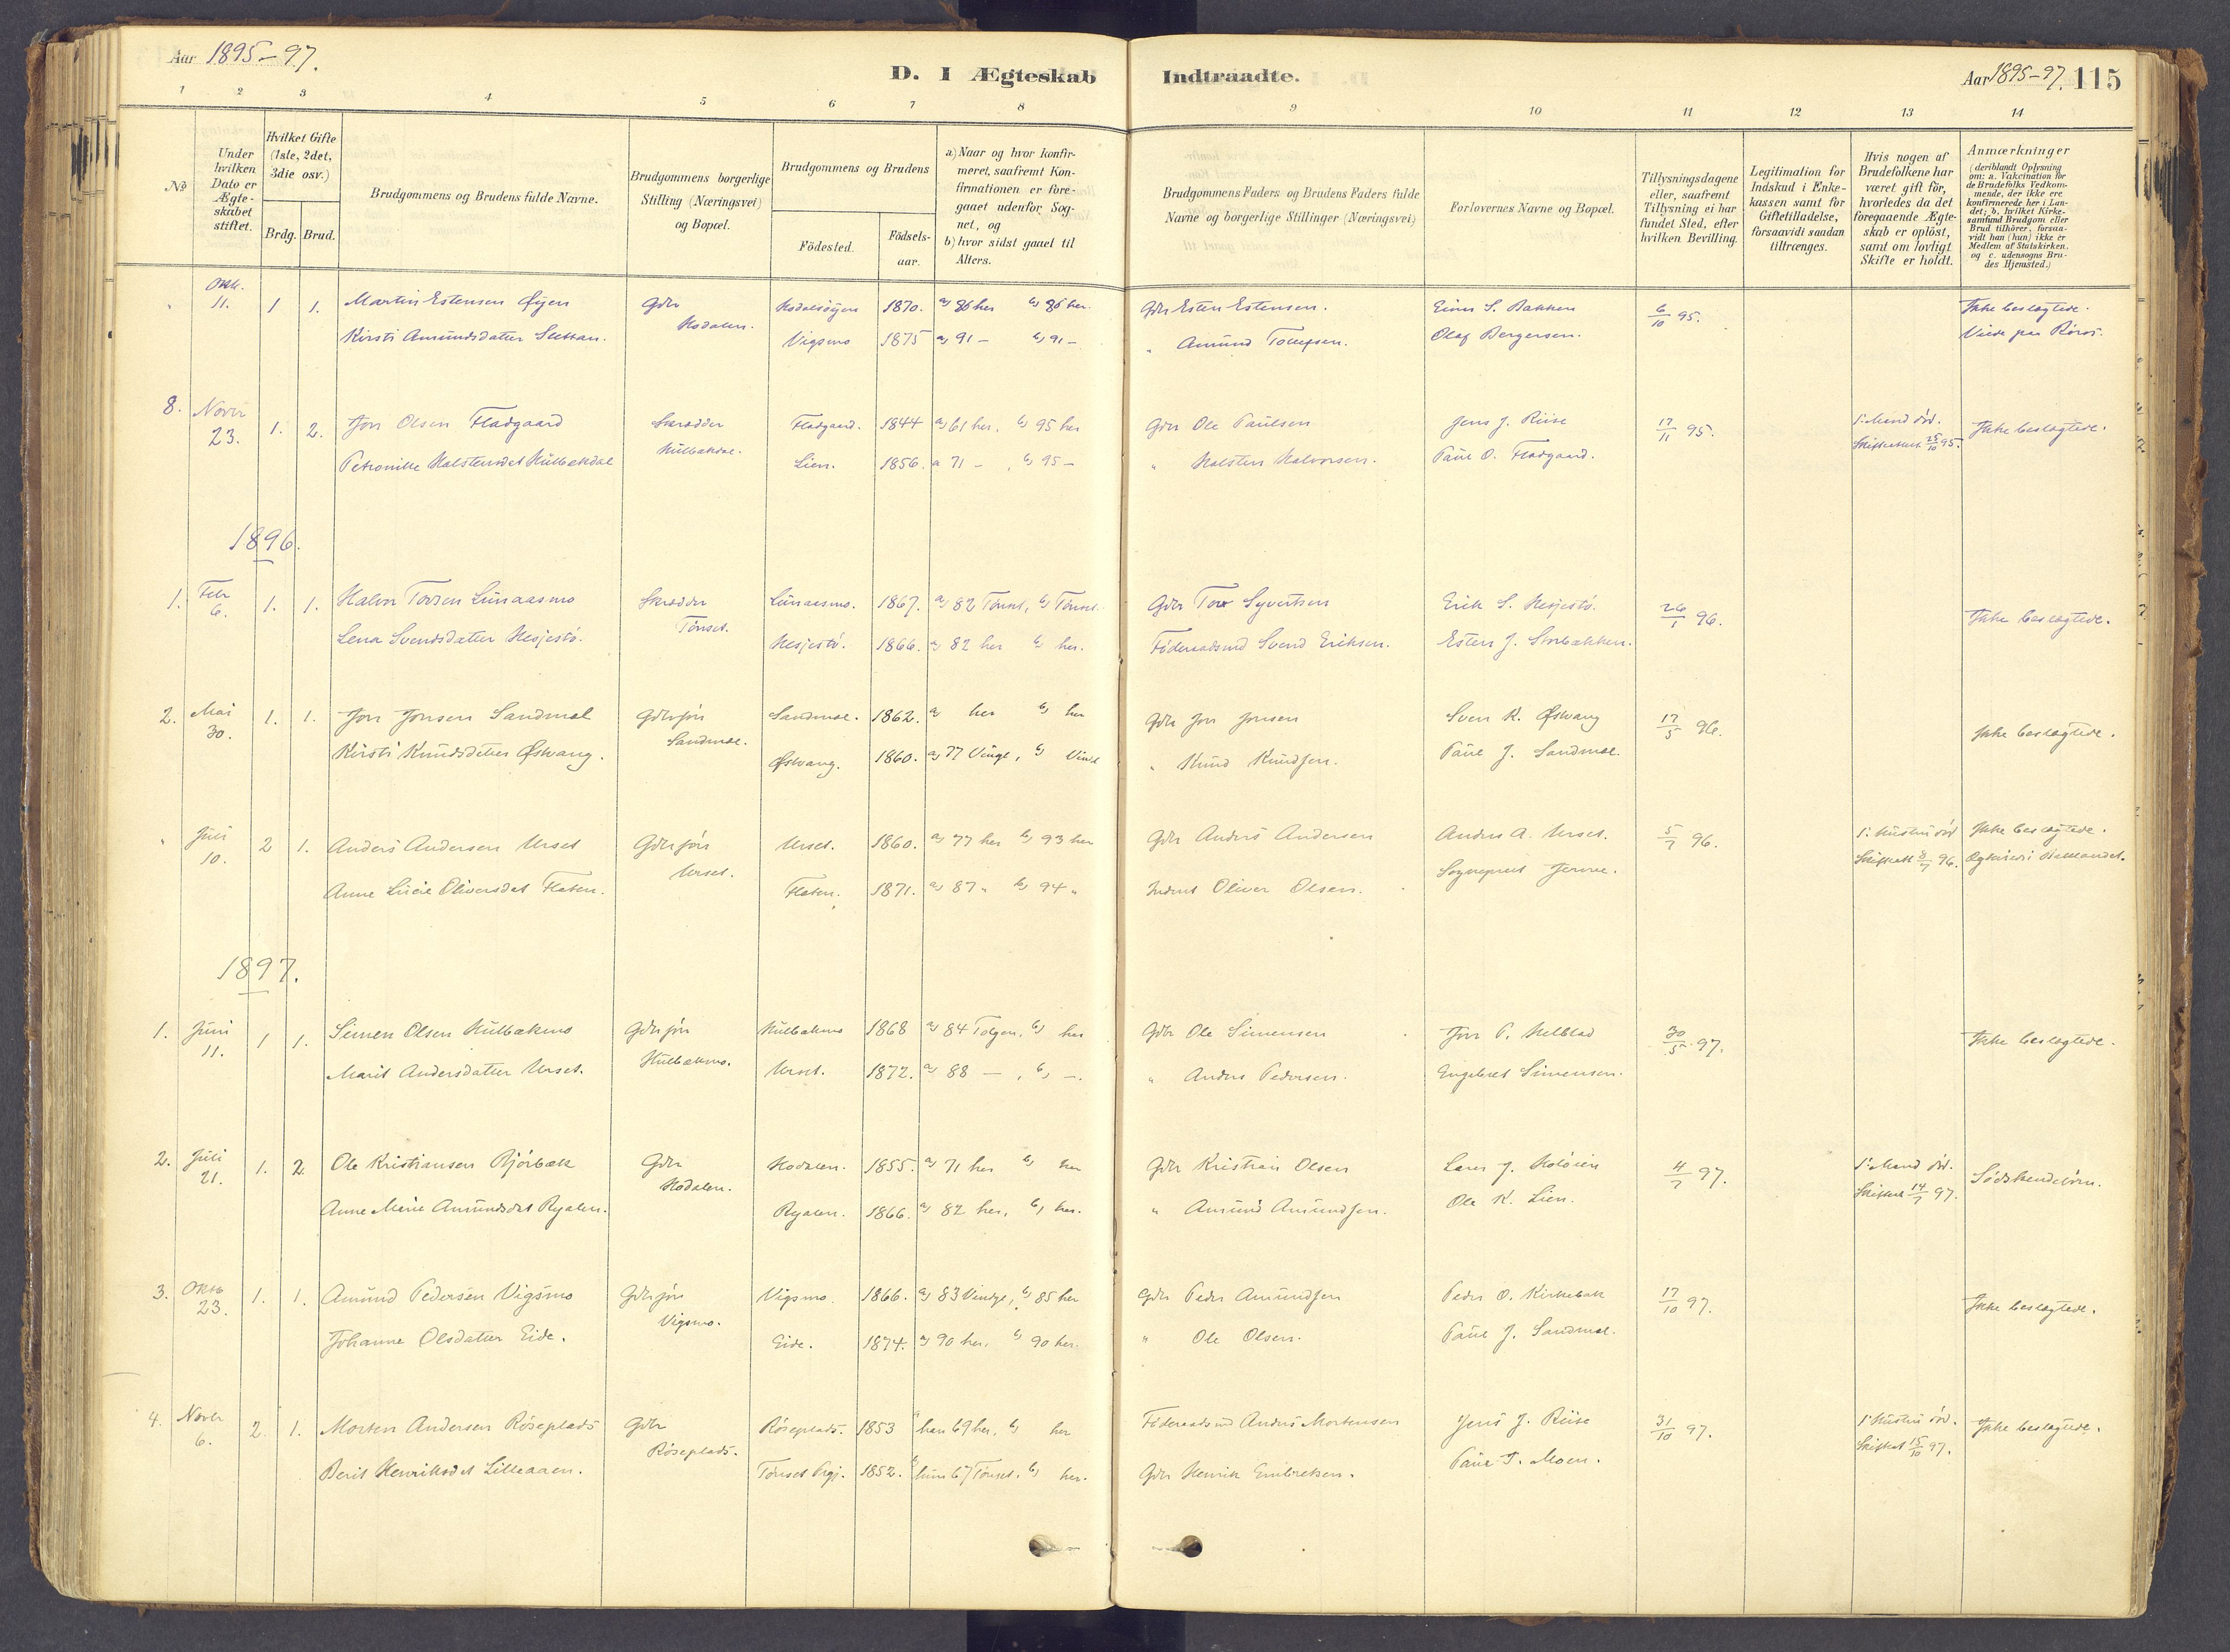 Aar 1895-97.
D. I Ægteskab Indtraadte.
Aar 1895-97. 115
1 2 3 4 5 6 7 8 9 10 11 12 13 14
No
Under hvilken Dato er Ægteskabet stiftet.
Hvilket Gifte (1ste, 2det, 3die osv.)
Brdg. Brud.
Brudgommens og Brudens fulde Navne.
Brudgommens borgerlige Stilling (Næringsvei) og Bopæl.
Brudgommens og Brudens
Födested. Födselsaar.
a) Naar og hvor konfirmeret, saafremt Konfirmationen er foregaaet udenfor Sognet, og
b) hvor sidst gaaet til Alters.
Brudgommens Faders og Brudens Faders fulde Navne og borgerlige Stillinger (Næringsvei)
Forlovernes Navne og Bopæl.
Tillysningsdagene eller, saafremt Tillysning ei har fundet Sted, efter hvilken Bevilling.
Legitimation for Indskud i Enkekassen samt for Giftetilladelse, forsaavidt saadan tiltrænges.
Hvis nogen af Brudefolkene har været gift för, hvorledes da det foregaaende Ægteskab er oplöst, samt om lovligt Skifte er holdt.
Anmærkninger (deriblandt Oplysning om: a. Vakcination for de Brudefolks Vedkommende, der ikke ere konfirmerede her i Landet; b. hvilket Kirkesamfund Brudgom eller Brud tilhörer, forsaavidt han (hun) ikke er Medlem af Statskirken, og c. udensogns Brudes Hjemsted.)
" Oktb. 11. 1 1. Martin Estensen Øyen Gdbr Hodalen. Hodalsöyen 1870. a) 86 her b) 86 her. Gdbr Esten Estensen. Einer S. Bakken 6/10 95. Ikke beslegtede.
Kirsti Amundsdatter Slettan. Vigsmo 1875 a) 91 - b) 91 - " Amund Tollefsen. Olaf Bergersen. Viede paa Röros.
8. Novbr 23. 1. 2. Jon Olsen Fladgaard Skrædder Hulbækdal. Fladgaard. 1844 a) 61 her, b) 95 her Gdbr Ole Paulsen Jens J. Riise 17/11 95. 1. Mand död. Ikke beslegtede.
Petronille Halstensdat Hulbækdal Lien. 1856. a 71 -, b) 95 - " Halsten Halvorsen. Paul O. Fladgaard. Skifteatt 25/10 95.
1896.
1. Febr 6. 1. 1. Halvor Torsen Lunaasmo Skrædder Tönset. Lunaasmo. 1867. a) 82 Tönset, b) Tönset. Gdbr Tor Syvertsen Erik S. Nesjestö. 26/1 96. Ikke beslegtede.
Lena Svendsdatter Nesjestö. Nesjestö. 1866. a) 82 her b) her. Föderaadsmd Svend Eriksen. Esten J. Storbækken.
2. Mai 30. 1. 1. Jon Jonsen Sandmæl Gdbrsøn Sandmæl. Sandmæl. 1862. a) her b) her Gdbr Jon Jonsen Sven K. Øsvang 17/5 96. Ikke beslegtede.
Kirsti Knudsdatter Øsvang. Øsvang. 1860. a) 77 Vingl, b) Vingl " Knud Knudsen. Paul J. Sandmæl
" Juli 10. 2 1. Anders Andersen Urset Gdbrsøn Urset. Urset. 1860. a) 77 her b) 93 her Gdbr Anders Andersen Anders A. Urset. 5/7 96. 1. Hustru död Ikke beslegtede.
Anne Lucie Oliversdat Flaten. Flaten. 1871. a) 87 " b) 94 " Oliver Olsen. Sogneprest Skifteatt 8/7 96.
1897.
1. Juni 11. 1 1. Simen Olsen Hulbækmo Gdbrsøn Hulbækmo. Hulbækmo 1868 a) 84 Tolgen, b) her Gdbr Ole Simensen Jon P. Melblad 30/5 97. Ikke beslegtede.
Marit Andersdatter Urset. Urset. 1872. a) 88 -, b) -. " Anders Pedersen. Engebret Simensen.
2. Juli 21. 1. 2. Ole Kristiansen Bjørbæk Gdbr Hodalen. Hodalen. 1855. a) 71 her b) her Gdbr Kristian Olsen Lars J. Holöien 4/7 97. 1. Mand död. Södskendebörn.
Anne Marie Amundsdat Ryalen. Ryalen. 1866. a) 82 her, b) her. " Amund Amundsen. Ole K. Lien. Skifteatt 14/7 97.
3. Oktb 23. 1. 1. Amund Pedersen Vigsmo Gdbrsøn Vigsmo. Vigsmo. 1866. a) 83 Vinge, b) 85 her Gdbr Peder Amundsen Peder O. Kirkebæk 17/10 97. Ikke beslegtede.
Johanne Olsdatter Eide. Eide. 1874. a) 90 her, b) 90 her. " Ole Olsen. Paul J. Sandmæl.
4. Novbr 6. 2. 1. Morten Andersen Röseplads Gdbr Röseplads. Röseplads. 1853 a han 69 her, b) her Föderaadsmd Anders Mortensen Jens J. Riise 31/10 97. 1. Hustru död. Ikke beslegtede.
Berit Henriksdat Lilleaaen. Tönset Prgj. 1852. hun 67 Tönset, b) her. Gdbr Henrik Embretsen. Paul T. Moen. Skifteat 15/10 97.